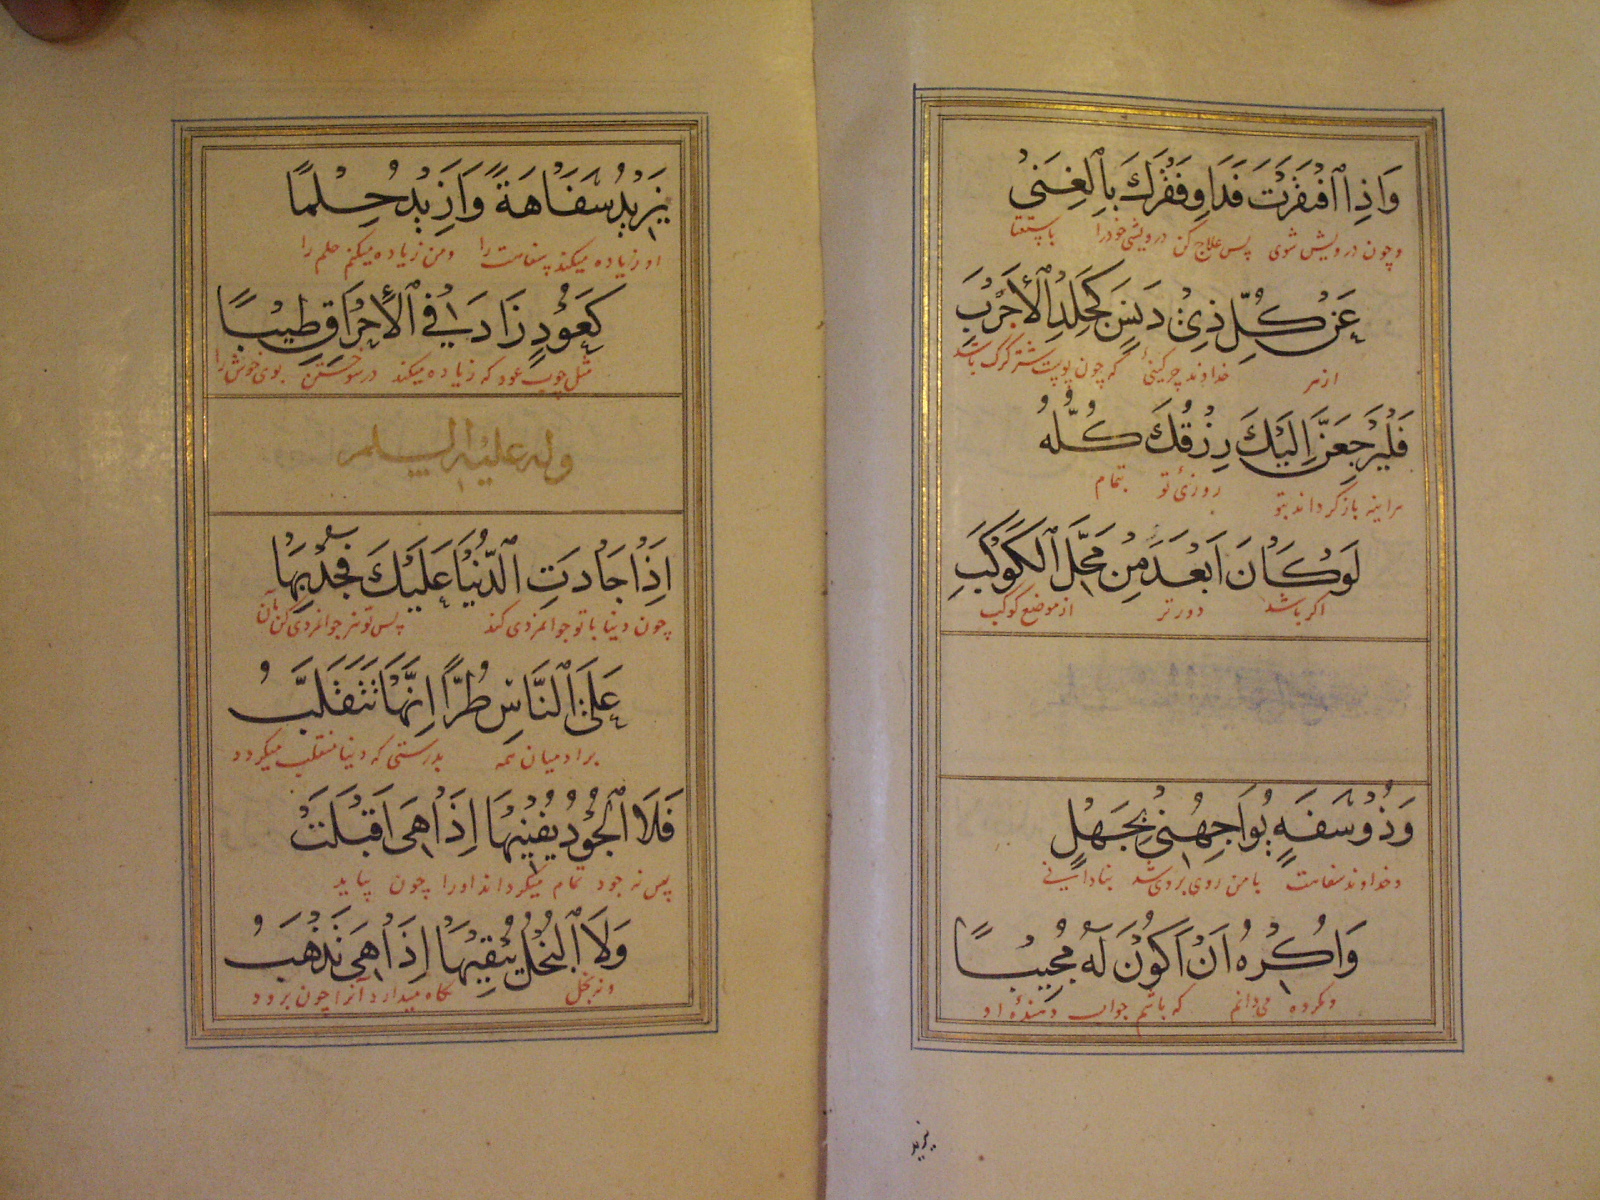 وَاِذِا ٱفْتَقَرْتَ فَدَاوِ فَقْرَكَ بِالْغِنَىٰ
وچون درویش شوی پس علاج کن درویشی خودرا باستغنا
عَنْ كُلِّ ذِىْ دَنَسٍ كَجِلْدِ ٱلْأَجْرَبِ
ازهر خداوند چرکینی که چون پوست شتر کرک باشد
فَلَيَرْجِعَنَّ اِلَيْكَ رِزْقُكَ كُلُّهُ
هراینه بازکرداند بتو روزیٔ تو بتمام
لَوْ كَانَ اَبْعَدَ مِنْ مَحَلِّ ٱلْكَوْكَبِ
اکر باشد دورتر از موضع کوکب
وَذُو سَفَهٍ يُوَاجِهُنِى بِجَهْلٍ
وخداوند سفاهت بامن روی بروی شد بنادانی
وَاَكْرَهُ اَنْ اَكُوْنَ لَهُ مُجِيْبًا
ومکروه میدانم که باشم جواب دهندهٔ او
یزید
يَزِيْدُ سَفَاهَةً وَاَزِيْدُ حِلْمًا
او زیاده میکند سفاهت را ومن زیاده میکنم حلم را
كَعُوْدٍ زَادَ فِى ٱلْأَحْرَاقِ طِيْبًا
مثل چوب عود که زیاده میکند در سوختن بوی خوش را
وله عليه السلم
اِذَا جَادَتِ ٱلدُّنْيَا عَلَيْكَ فَجُدْ بِهَا
چون دنیا باتو جوانمردی کند پس تو نیز جوانمردی کن بآن
عَلَى ٱلنَّاسِ طُرًّا اِنَّهَا تَتَقَلَّبُ
برادمیان همه بدرستی که دنیا منقلب میکردد
فَلَا ٱلْجُوْدُ يُفْنِيْهَا اِذَا هِىَ اَقْبَلَتْ
پس نه جود تمام میکرداند اورا چون بیاید
وَلَا ٱلْبُخْلُ يُبْقِيْهَا اِذَا هِىَ تَذْهَبُ
ونه بخل نکاه میدارد آنرا چون برود